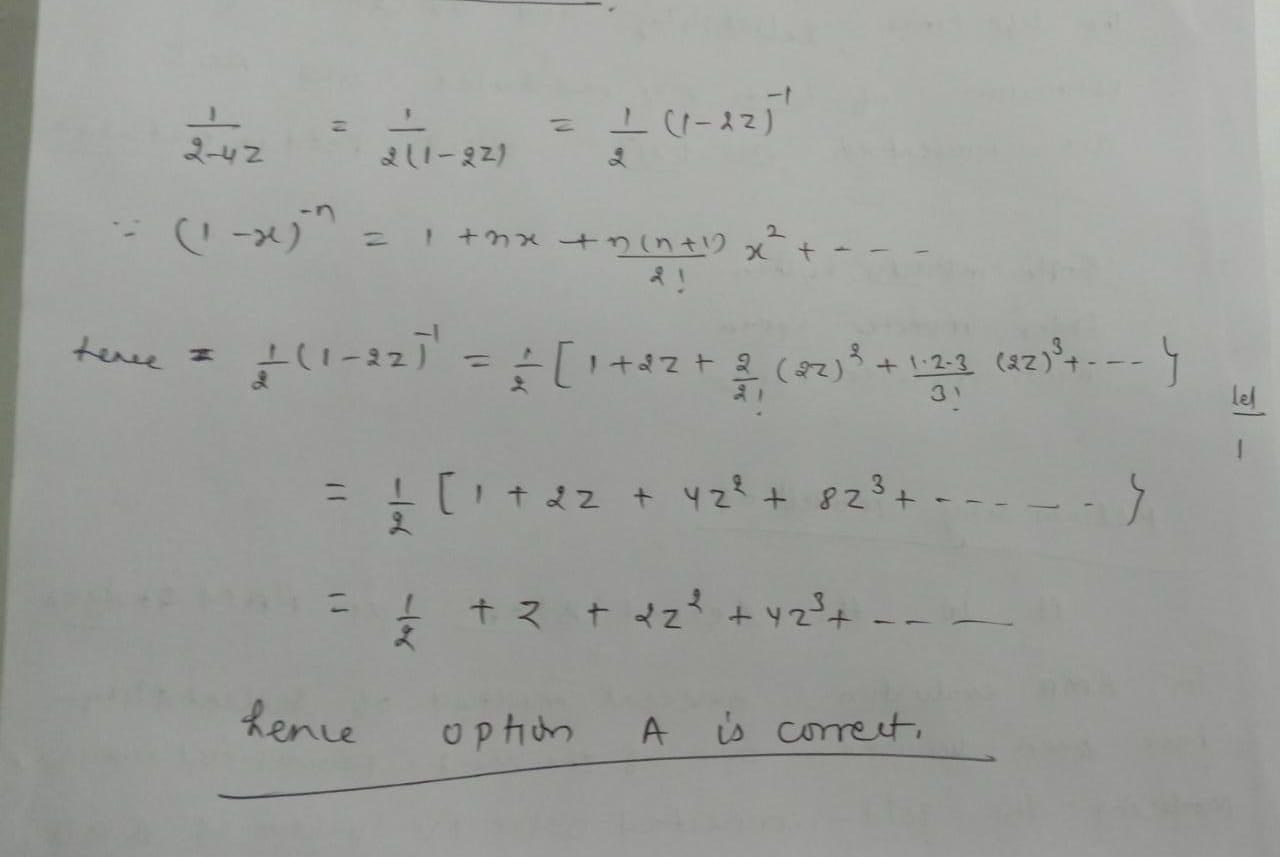 1/(2-4z) = 1/(2(1-2z)) = 1/2 (1-2z)^-1
∵ (1-x)^-n = 1 + nx + n(n+1)/2! x^2 + - - -
hence = 1/2 (1-2z)^-1 = 1/2 [ 1 + 2z + 2/2! (2z)^2 + 1·2·3/3! (2z)^3 + - - - }
= 1/2 [ 1 + 2z + 4z^2 + 8z^3 + - - - - - - }
= 1/2 + z + 2z^2 + 4z^3 + - - —
hence option A is correct.
1